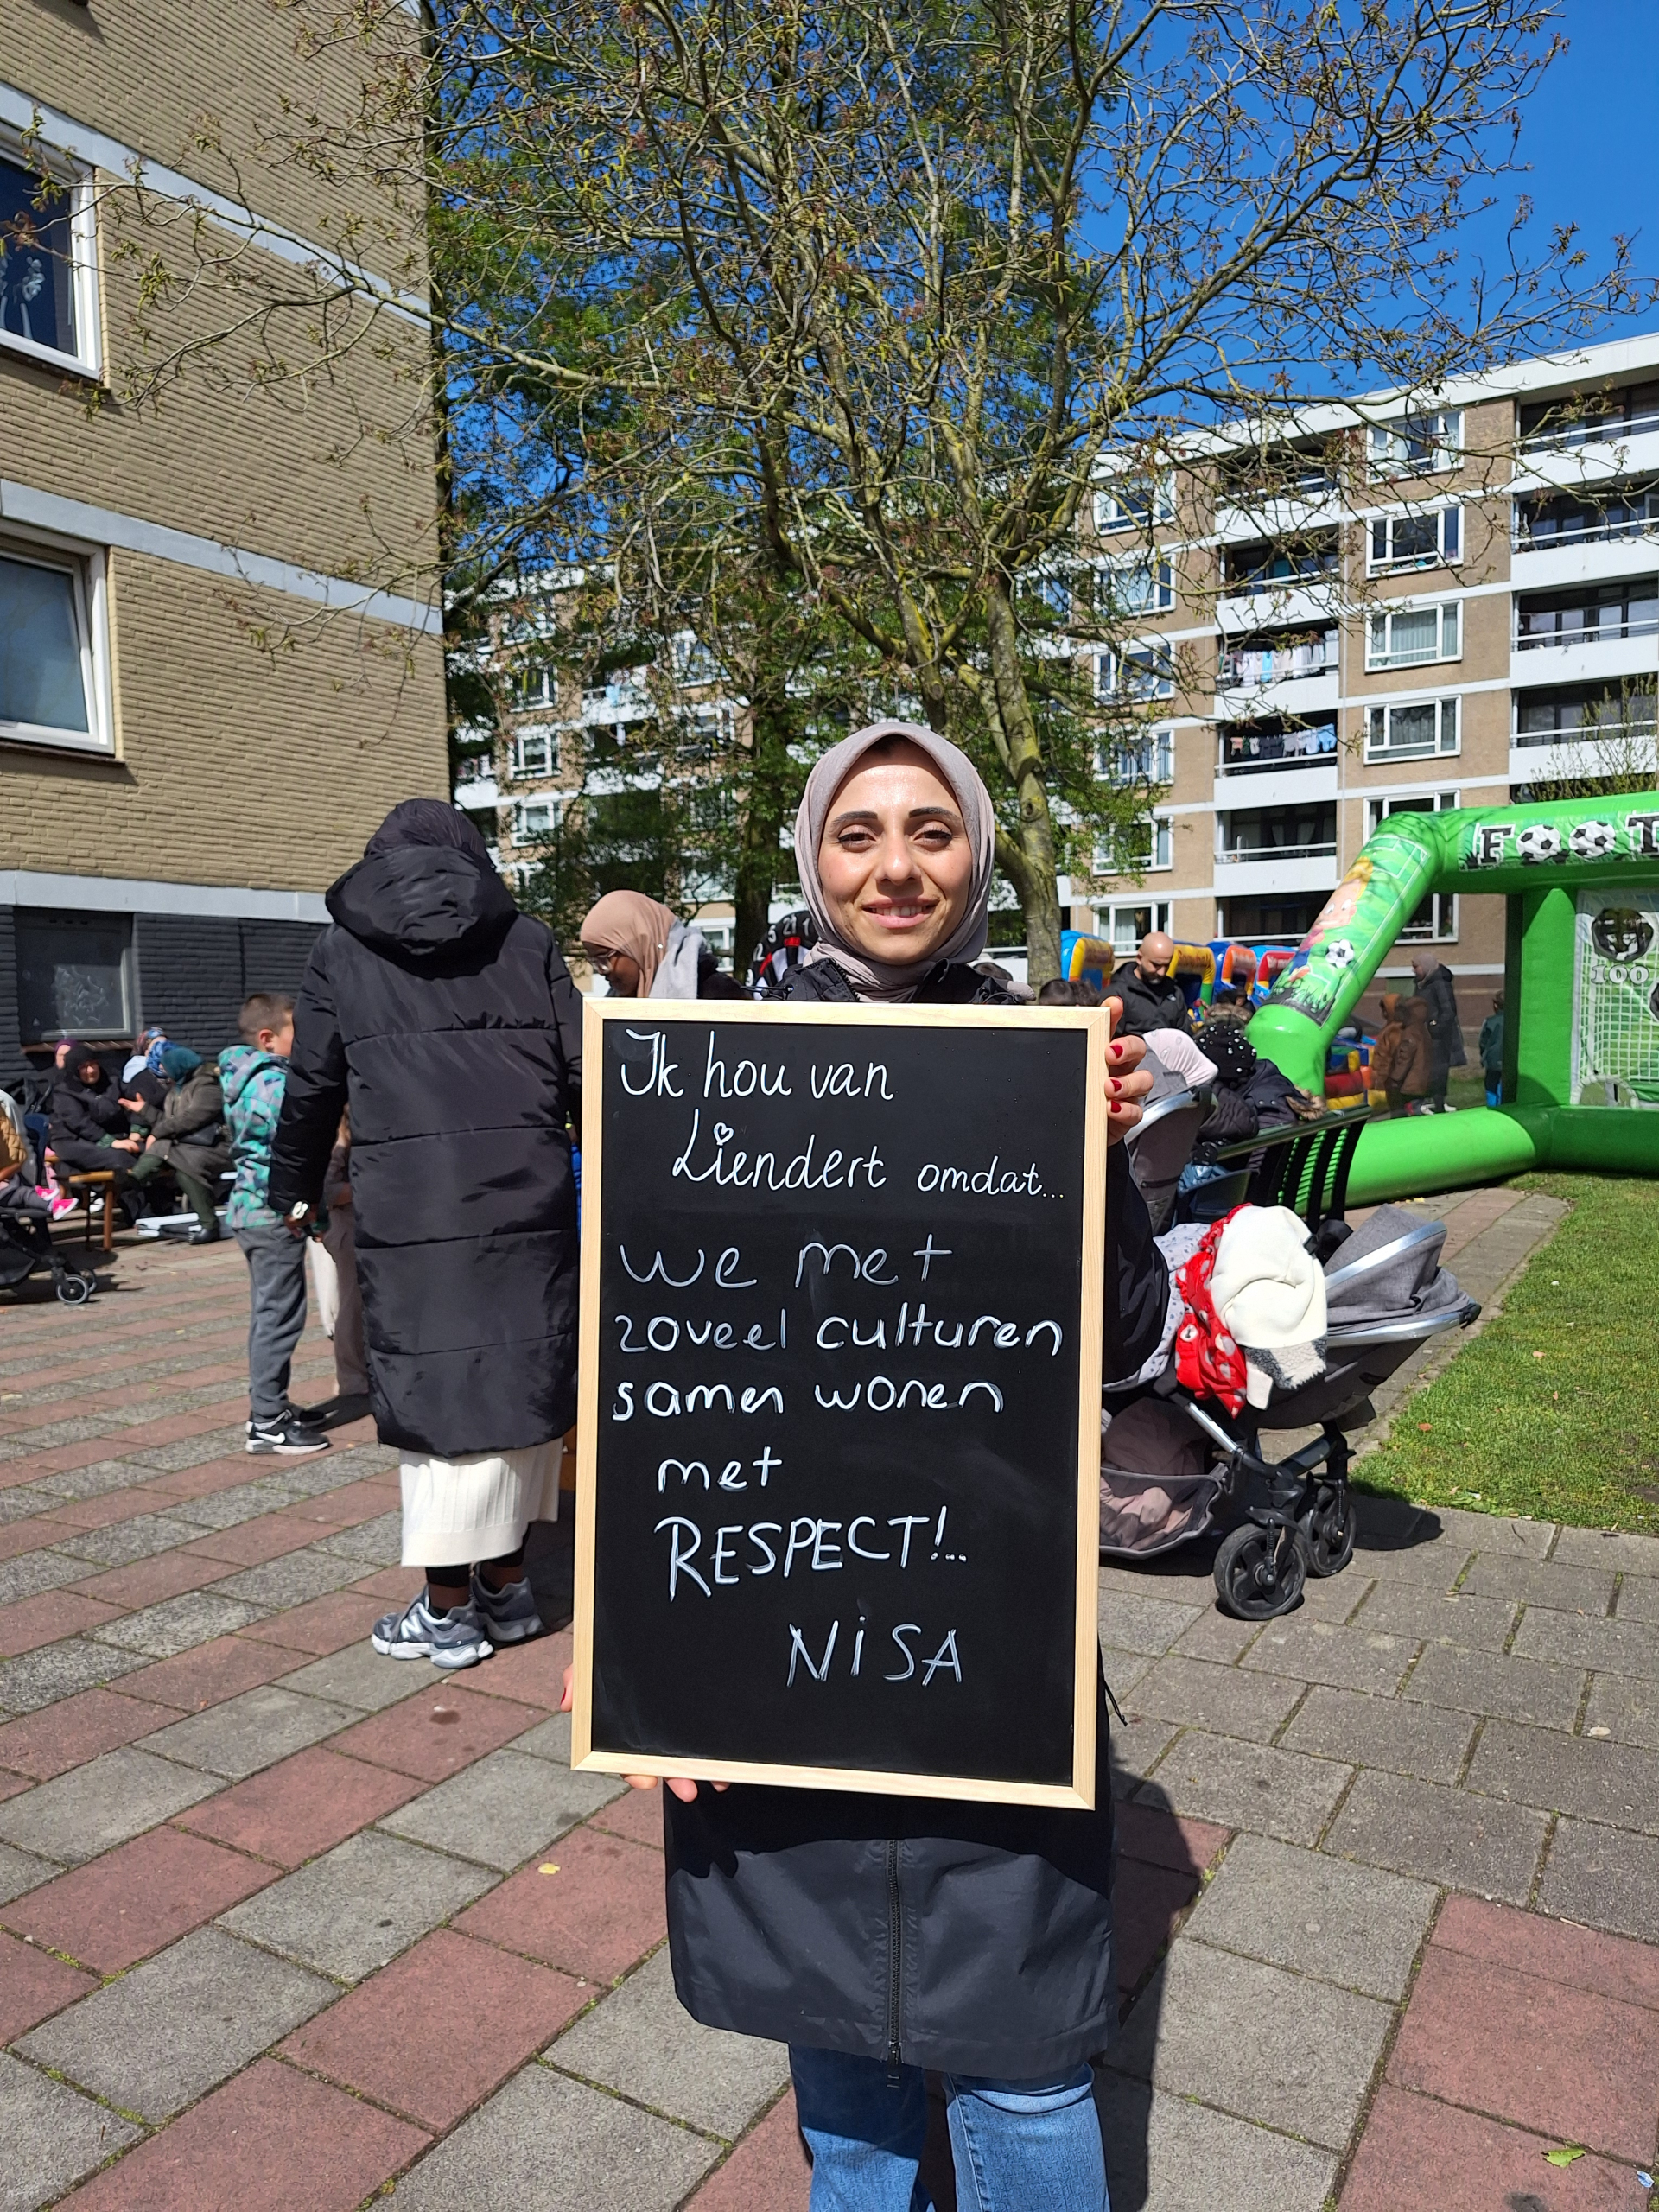 Ik hou van
Liendert omdat...
we met
zoveel culturen
samen wonen
met
RESPECT!..
NiSA
FOOT
100